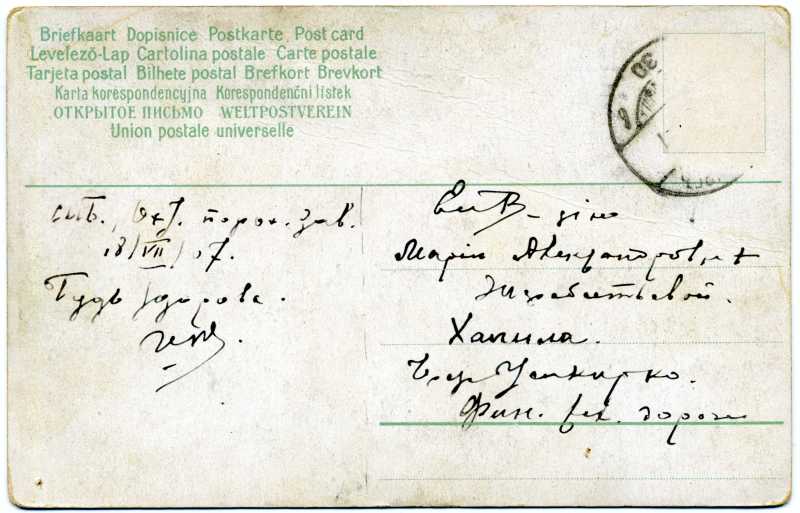 Briefkaart Dopisnice Postkarte Post card
Levelező-Lap Cartolina postale Carte postale
Tarjeta postal Bilhete postal Brefkort Brevkort
Karta korespondencyjna Korespondenční lístek
ОТКРЫТОЕ ПИСЬМО WELTPOSTVEREIN
Union postale universelle
СПБ. Охт. порох. зав.
18/VII/07.
Будь здорова.
ЕИВ-дiю
Марiи Александровнѣ
Хапила.
Усикирко.
Фин. жел. дороги
30
8